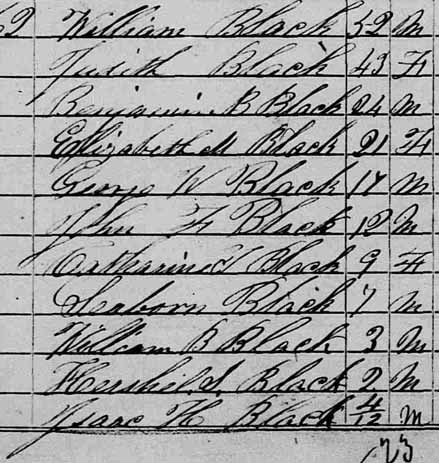 William Black 52 M
Judith Black 43 F
Benjamin B Black 24 M
Elizabeth M Black 21 F
George W Black 17 M
John F Black 12 M
Catharine Black 9 F
Seaborn Black 7 M
William B Black 3 M
Hershel S Black 2 M
Isaac H Black 4/12 M
23